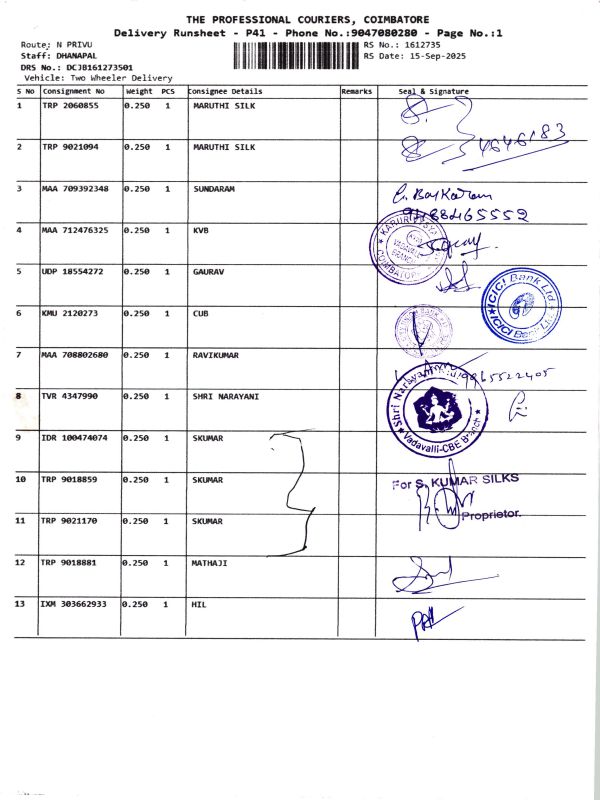 THE PROFESSIONAL COURIERS, COIMBATORE
Delivery Runsheet - P41 - Phone No.:9047080280 - Page No.:1
Route: N PRIVU RS No.: 1612735
Staff: DHANAPAL RS Date: 15-Sep-2025
DRS No.: DCJ8161273501
Vehicle: Two Wheeler Delivery
S No Consignment No Weight PCS Consignee Details Remarks Seal & Signature
1 TRP 2060855 0.250 1 MARUTHI SILK
2 TRP 9021094 0.250 1 MARUTHI SILK
3 MAA 709392348 0.250 1 SUNDARAM
4 MAA 712476325 0.250 1 KVB
VADAVALLI BRANCH
5 UDP 18554272 0.250 1 GAURAV
ICICI Bank Ltd. ICICI Bank Ltd.
6 KMU 2120273 0.250 1 CUB
7 MAA 708802680 0.250 1 RAVIKUMAR
8 TVR 4347990 0.250 1 SHRI NARAYANI
Shri Narayani
Vadavalli-CBE Branch
9 IDR 100474074 0.250 1 SKUMAR
10 TRP 9018859 0.250 1 SKUMAR
For S. KUMAR SILKS
Proprietor.
11 TRP 9021170 0.250 1 SKUMAR
12 TRP 9018881 0.250 1 MATHAJI
13 IXM 303662933 0.250 1 HIL